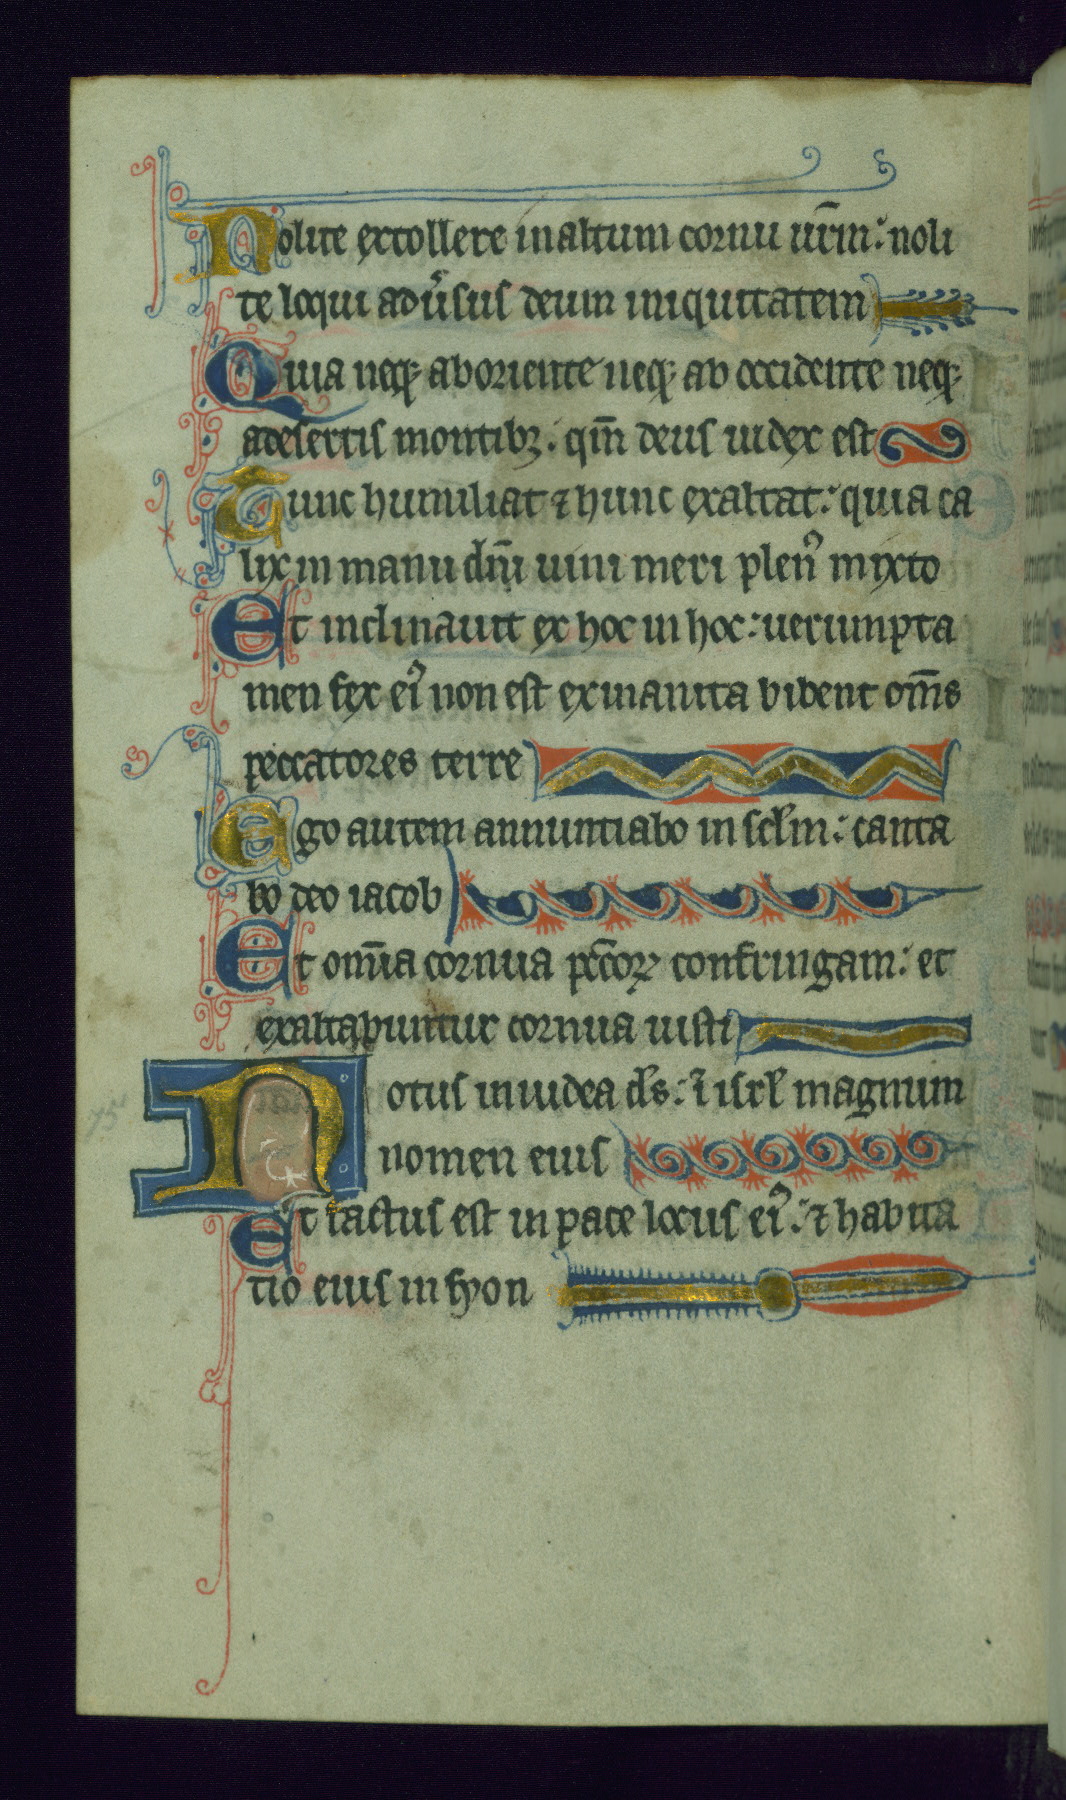 Nolite extollere in altum cornu ur̄m: noli
te loqui adu̾sus deum iniquitatem
Quia neqꝫ ab oriente neqꝫ ab occidente neqꝫ
a desertis montibꝫ: qm̄ deus iudex est
Hunc humiliat ⁊ hunc exaltat: quia ca
lix in manu dn̄i uini meri plen᾽ mixto
Et inclinauit ex hoc in hoc: uerumpta
men fex ei᾽ non est exinanita bibent om̄s
peccatores terre
Ego autem annuntiabo in sclm̄: canta
bo deo iacob
Et om̄ia cornua pc̄coꝝ confringam: et
exaltabuntur cornua iusti
Notus in iudea ds̄: ī isrł magnum
nomen eius
Et factus est in pace locus ei᾽: ⁊ habita
tio eius in syon
75